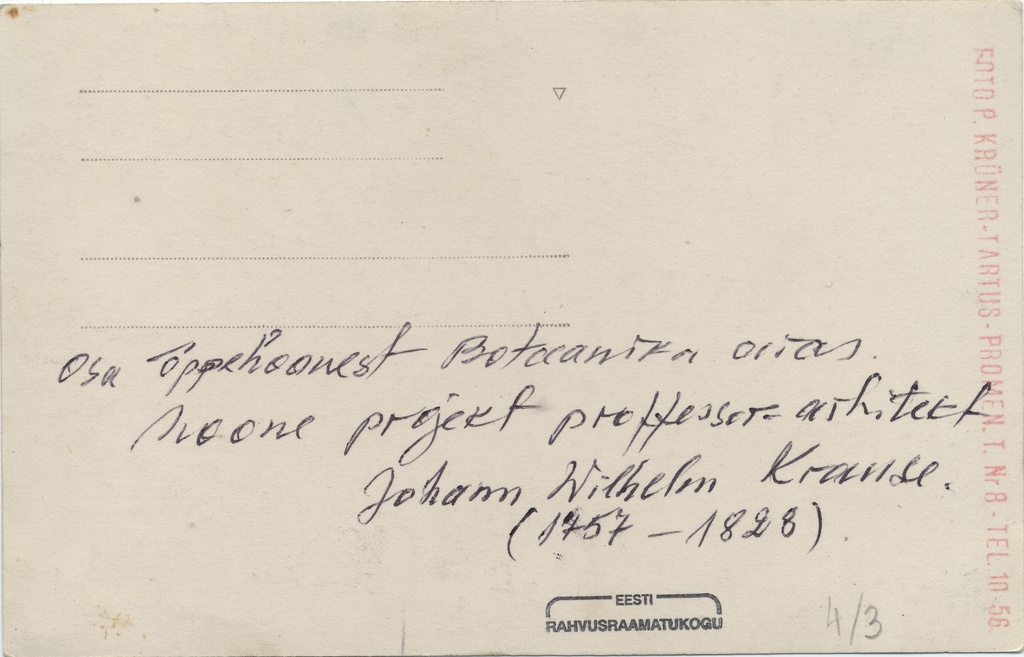 Osa õppehoonest Botaanika aias.
hoone projekt proffessor=arhitekt
Johann Wilhelm Krause.
(1757 – 1828).
EESTI
RAHVUSRAAMATUKOGU
4/3
FOTO P. KRÜNER-TARTUS-PROMEN. T. Nr 8 - TEL. 10-56